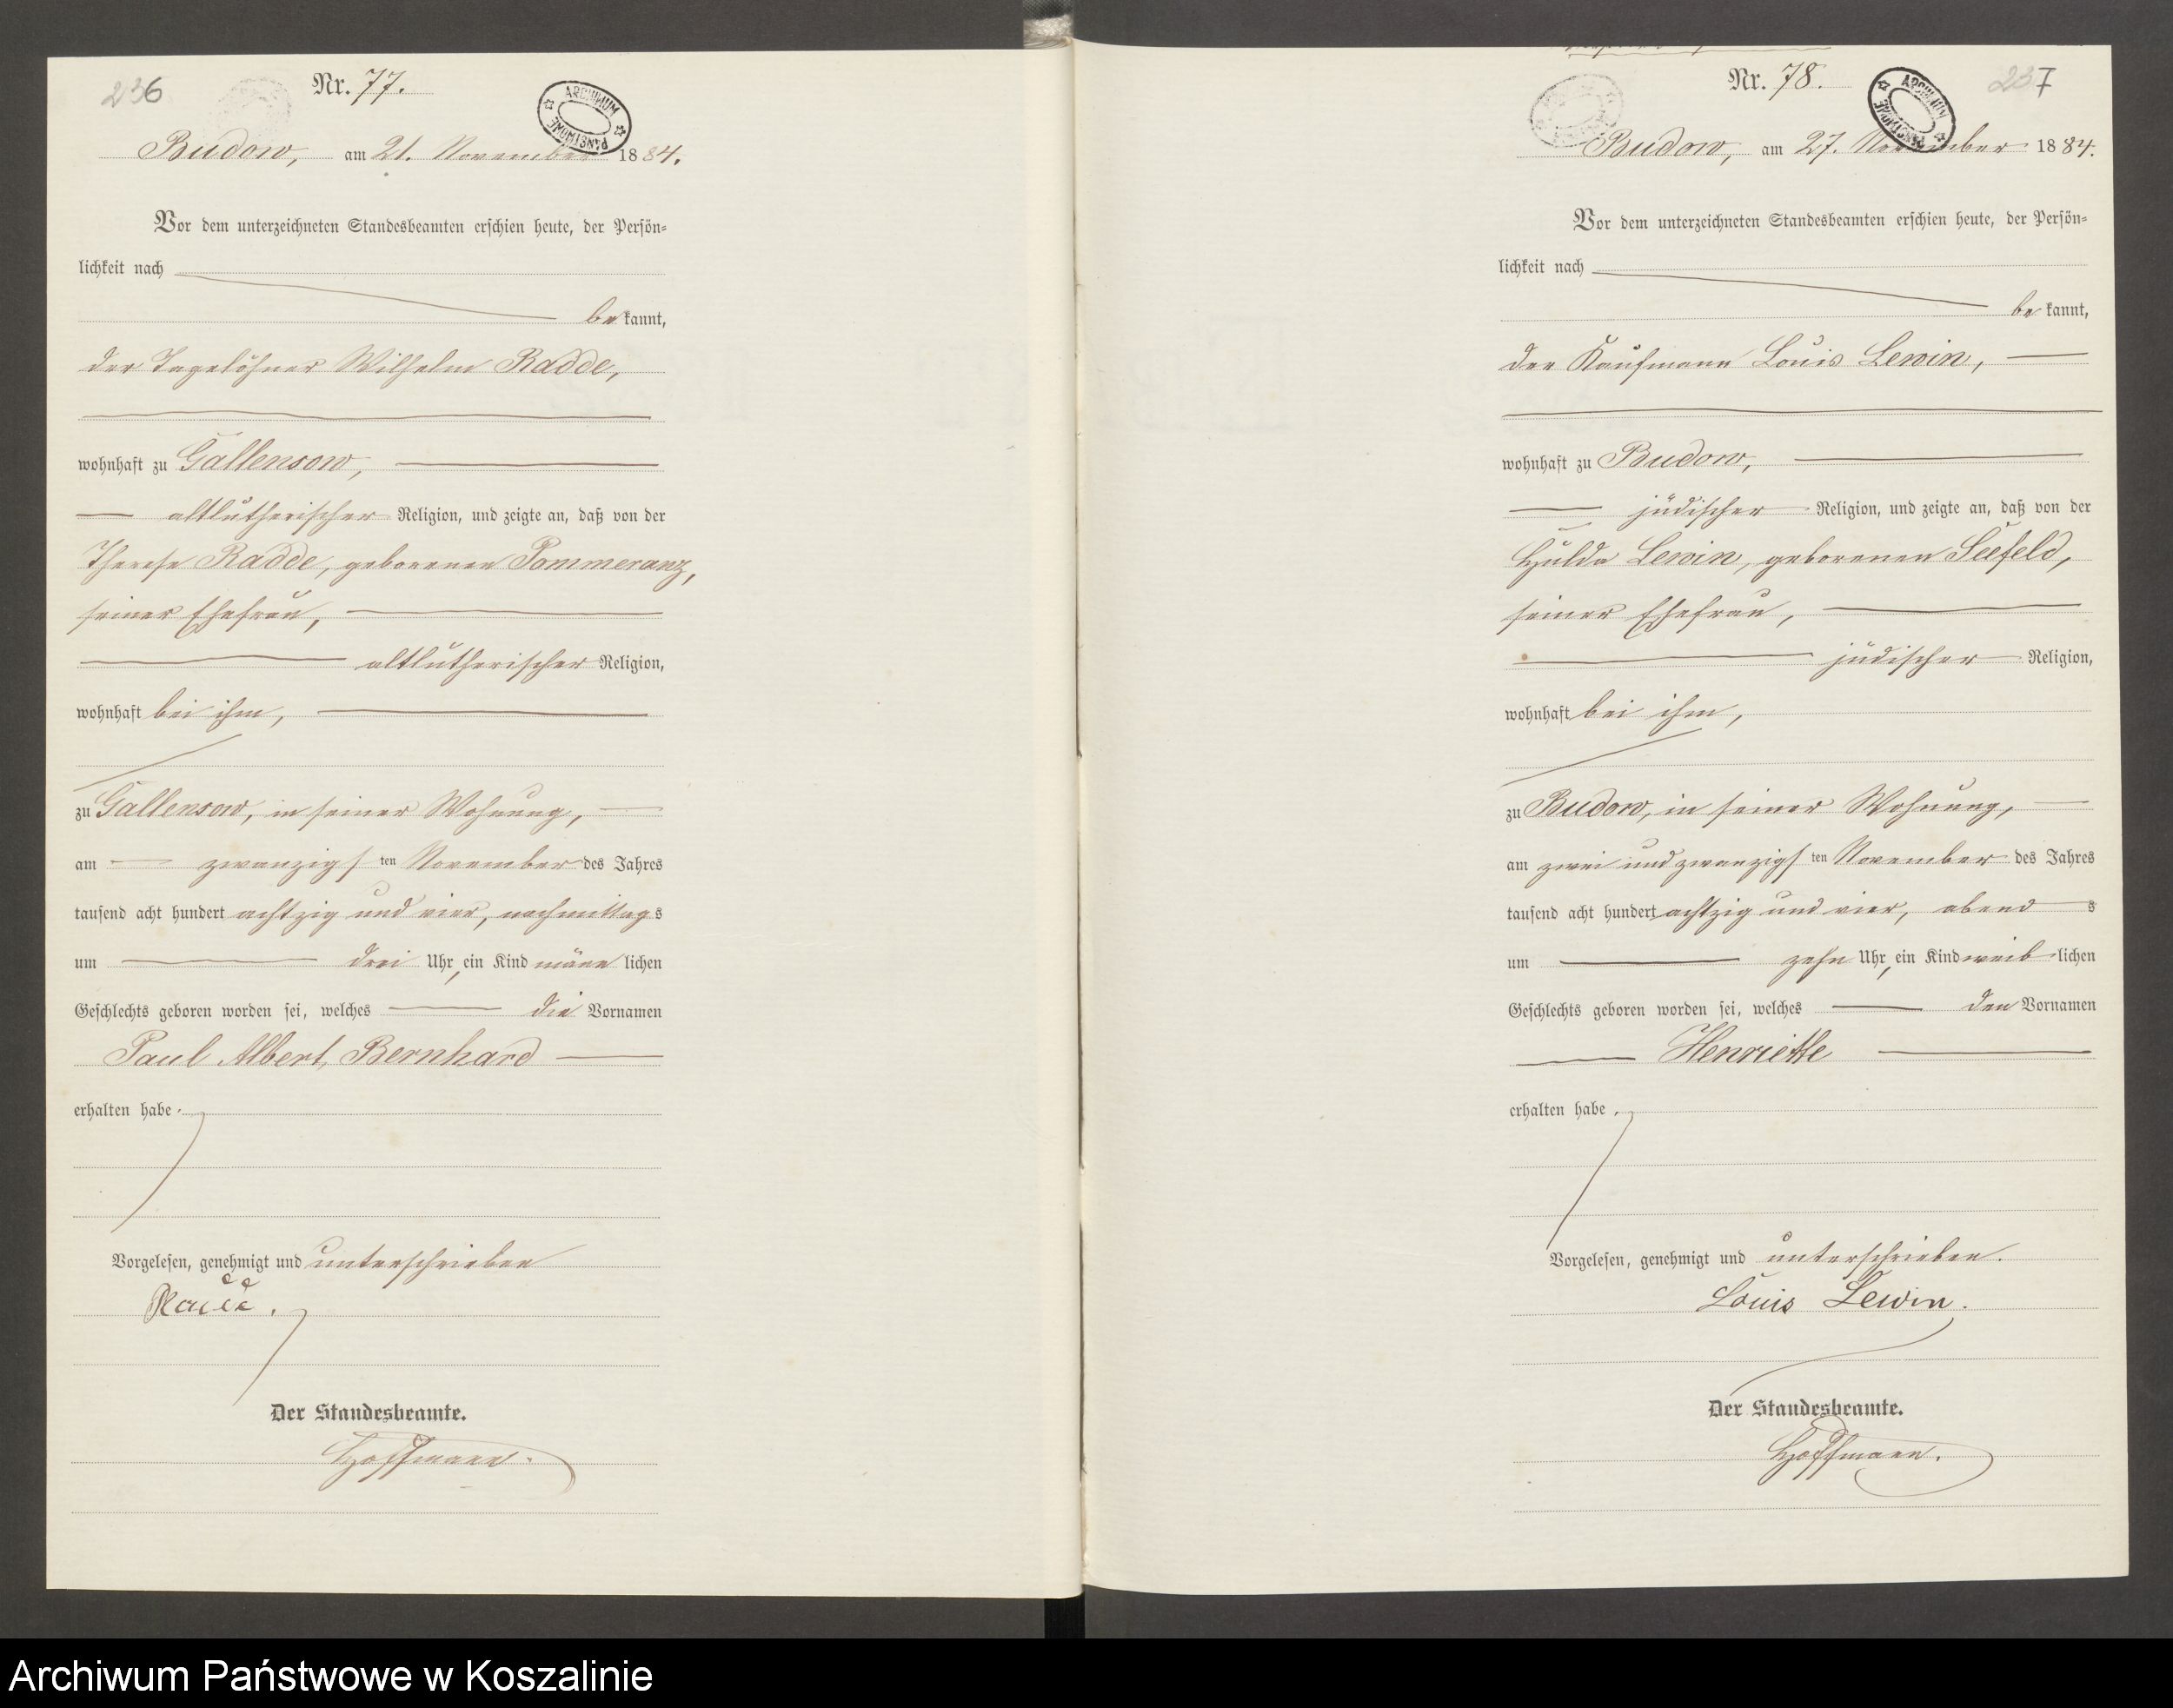 236
Nr. 77.
ARCHIWUM PAŃSTWOWE
Budow, am 21. November 1884.
Vor dem unterzeichneten Standesbeamten erschien heute, der Persön-
lichkeit nach
bekannt,
der Tagelöhner Wilhelm Radde,
wohnhaft zu Gallensow,
altlutherischer Religion, und zeigte an, daß von der
Therese Radde, geborenen Pommeranz,
seiner Ehefrau,
altlutherischer Religion,
wohnhaft bei ihm,
zu Gallensow, in seiner Wohnung,
am zwanzigsten November des Jahres
tausend acht hundert achtzig und vier, nachmittags
um drei Uhr, ein Kind männlichen
Geschlechts geboren worden sei, welches die Vornamen
Paul Albert Bernhard
erhalten habe.
Vorgelesen, genehmigt und unterschrieben
Radde.
Der Standesbeamte.
Hoffmann.
237
Nr. 78.
ARCHIWUM PAŃSTWOWE
Budow, am 27. November 1884.
Vor dem unterzeichneten Standesbeamten erschien heute, der Persön-
lichkeit nach
bekannt,
der Kaufmann Louis Lewin,
wohnhaft zu Budow,
jüdischer Religion, und zeigte an, daß von der
Hulda Lewin, geborenen Seefeld,
seiner Ehefrau,
jüdischer Religion,
wohnhaft bei ihm,
zu Budow, in seiner Wohnung,
am zwei und zwanzigsten November des Jahres
tausend acht hundert achtzig und vier, abends
um zehn Uhr, ein Kind weiblichen
Geschlechts geboren worden sei, welches den Vornamen
Henriette
erhalten habe.
Vorgelesen, genehmigt und unterschrieben.
Louis Lewin.
Der Standesbeamte.
Hoffmann.
Archiwum Państwowe w Koszalinie